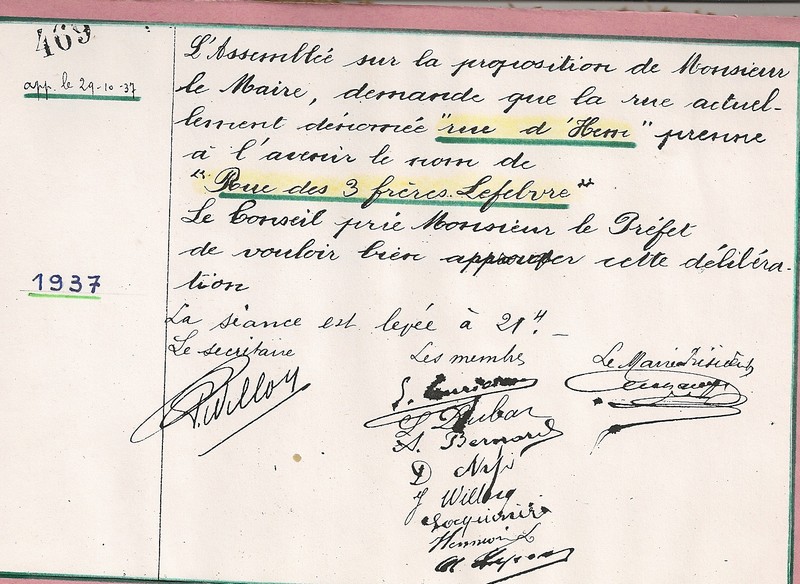 469
app. le 29-10-37
L'Assemblée sur la proposition de Monsieur
le Maire, demande que la rue actuel-
lement dénomée "rue d'Hem" prenne
à l'avenir le nom de
"Rue des 3 frères Lefebvre"
Le Conseil prie Monsieur le Préfet
de vouloir bien approuver cette délibéra-
tion
1937
La séance est levée à 21H. –
Le secrétaire
Les membres
Le Maire Président
P. Willoy
Dubar
A. Bernard
D
J Willoy